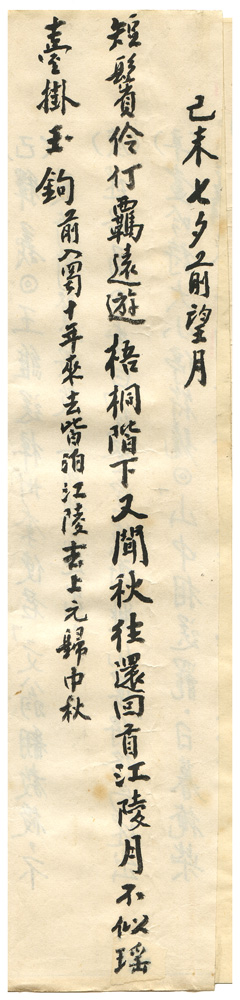 己未七夕前望月
短鬢伶仃羈遠遊梧桐階下又聞秋往還回首江陵月不似瑤
臺掛玉鉤前入蜀十年來去皆泊江陵去上元歸中秋